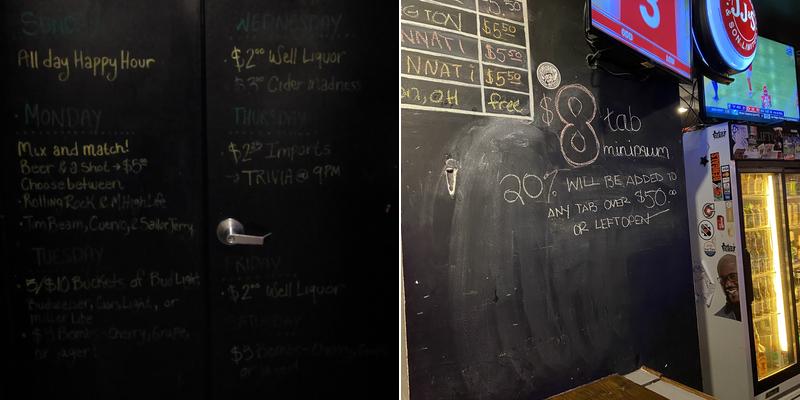 SUNDAY
All day Happy Hour
• MONDAY
Mix and match!
Beer & a shot → $5
Choose between
• Rolling Rock & M. High Life
• Tim Beam, Cuervo, & Sailor Jerry
TUESDAY
• 5/$10 Buckets of Bud Light,
Budweiser, Coors Light, or
Miller Lite
Bombs - Cherry, Grape,
or Jager!
WEDNESDAY
• $2.00 Well Liquor
Cider Madness
THURSDAY
• Imports
→ TRIVIA @ 9PM
FRIDAY
• $2.00 Well Liquor
SATURDAY
$3 Bombs - Cherry, Grape
or Jager!
$5.50
GTON $5.50
NNATI $5.50
NNATI $5.50
on, OH free
$8 tab
minimum
20% WILL BE ADDED TO
ANY TAB OVER $50.00
OR LEFT OPEN
3